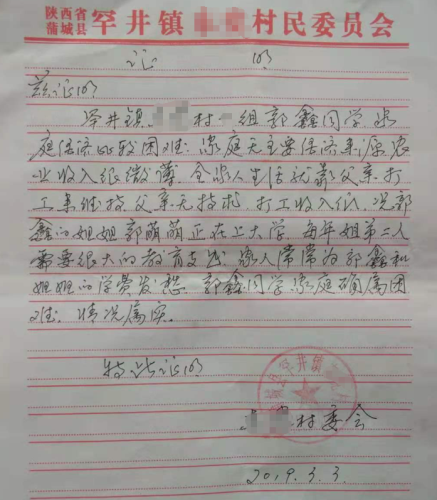 陕西省
蒲城县 罕井镇 村民委员会
证 明
兹证明
罕井镇 村一组郭鑫同学家
庭经济比较困难；家庭无主要经济来源，农
业收入很微薄，全家人生活就靠父亲打
工来维持，父亲无技术，打工收入低，况郭
鑫的姐姐郭萌萌正在上大学，每年姐弟二人
需要很大的教育支出；家人常常为郭鑫和
姐姐的学费发愁，郭鑫同学家庭确属困
难；情况属实。
特此证明
罕井镇
村委会
2019.3.3.